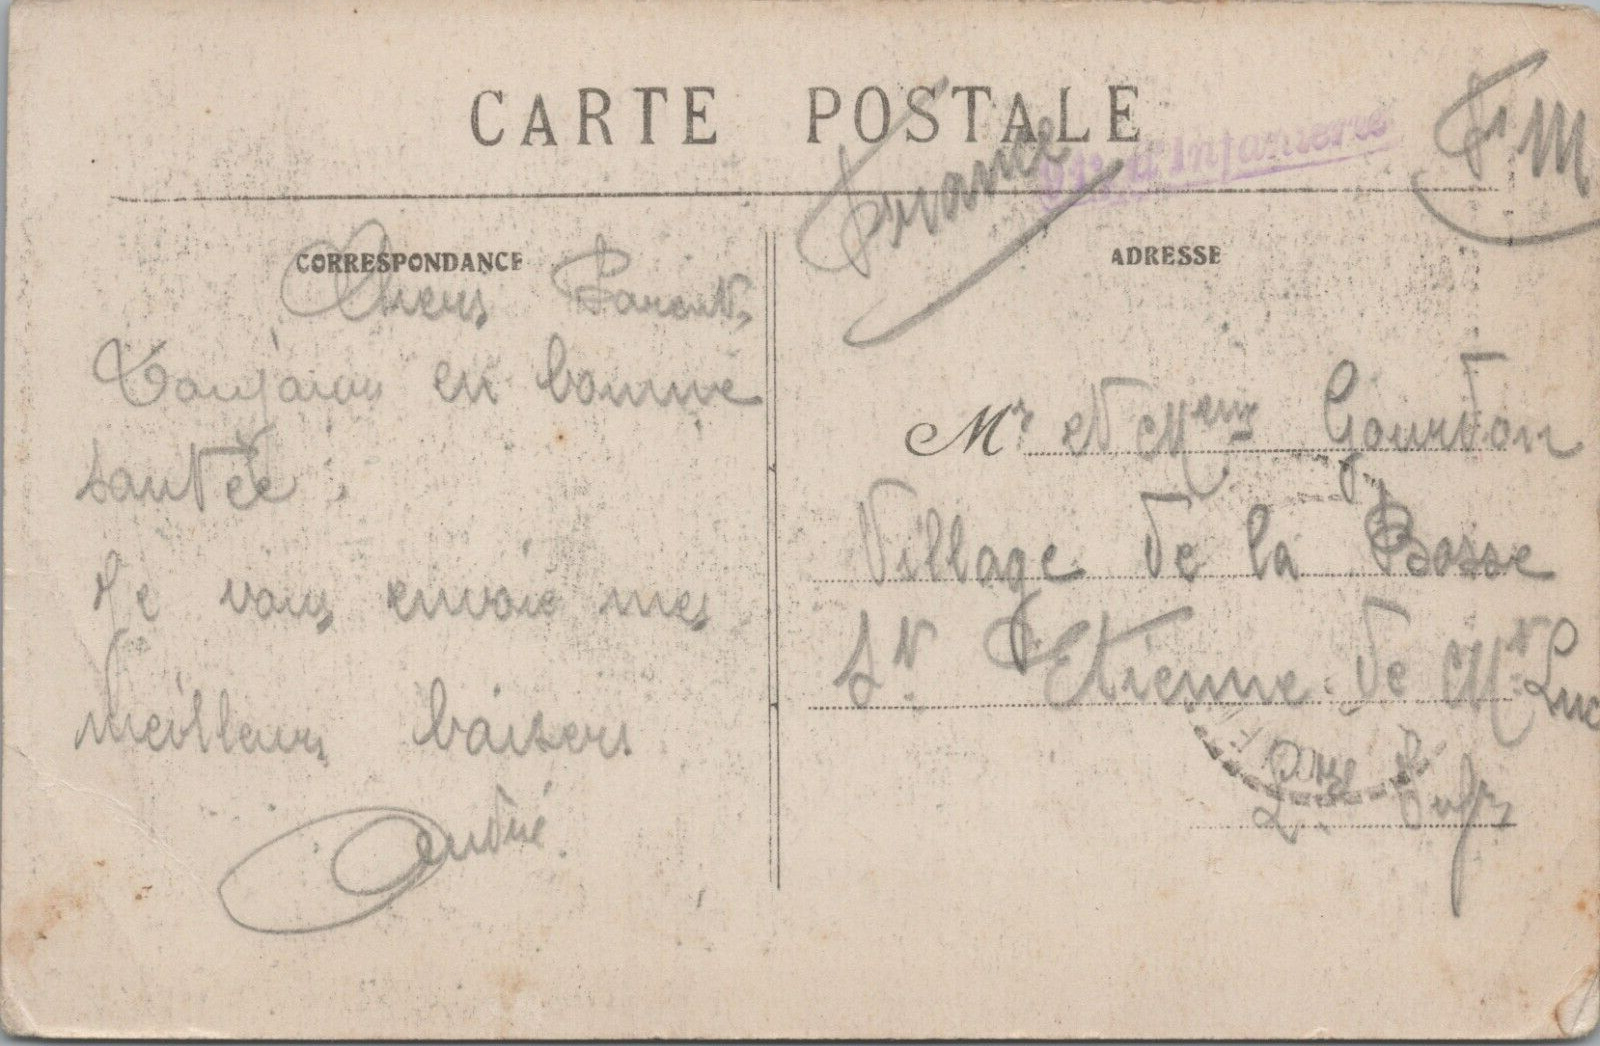 CARTE POSTALE
d'Infanterie
F M
France
CORRESPONDANCE
ADRESSE
Chers Parents
Toujours en bonne
santée.
Je vous envoie mes
Meilleurs baisers
André
Mr et Meur Gourdon
Village de la Bosse
St Etienne de Mt Luc
Loire Infre